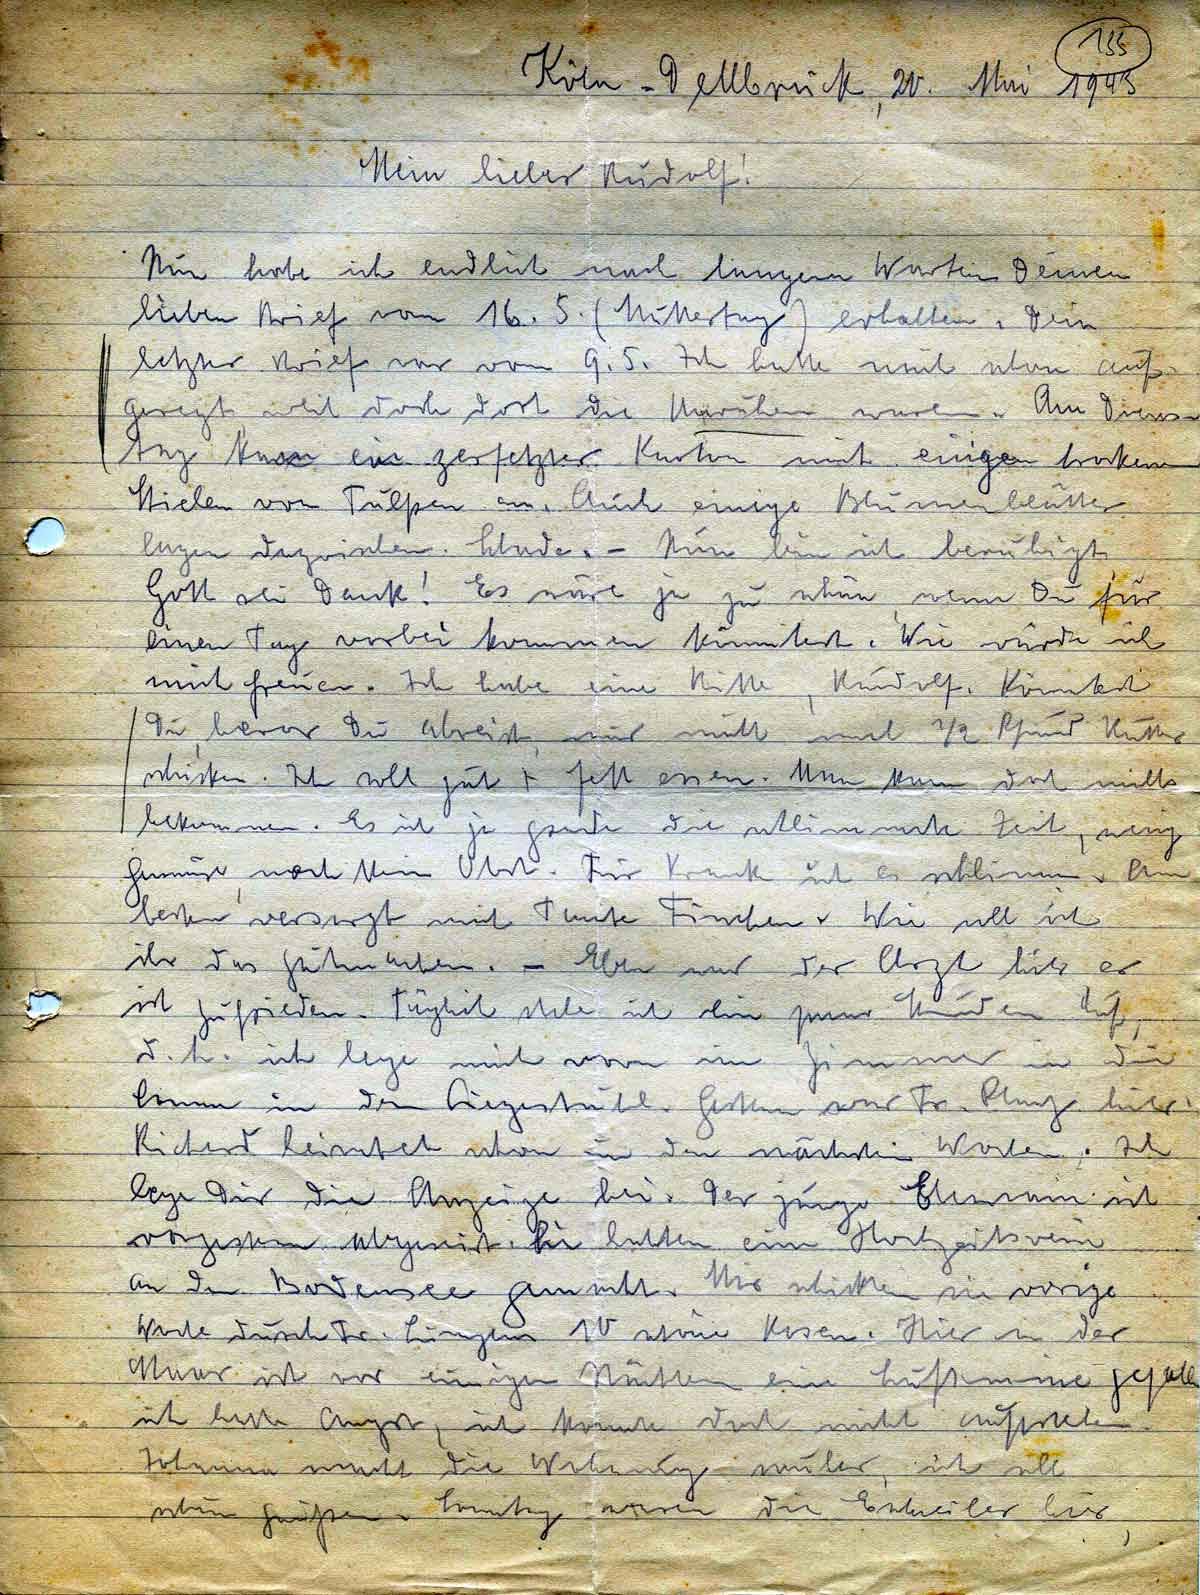 133
Köln-Dellbrück, 20. Mai 1943
Mein lieber Rudolf!
Nun habe ich endlich nach langem Warten Deinen
lieben Brief vom 16.5. (Muttertag) erhalten. Dein
letzter Brief war vom 9.5. Ich hatte mich schon auf-
geregt, weil doch dort die Unruhen waren. Am Diens-
tag kam ein zerfetzter Karton mit einigen trockenen
Stielen von Tulpen an. Auch einige Blumenblätter
lagen dazwischen. Schade. – Nun bin ich beruhigt.
Gott sei Dank! Es wäre ja zu schön, wenn Du für
einen Tag vorbei kommen könntest. Wie würde ich
mich freuen. Ich habe eine Bitte, Rudolf. Könntest
Du, bevor Du abreist, mir nicht mal 1/2 Pfund Butter
schicken. Ich soll gut + fett essen. Man kann doch nichts
bekommen. Es ist ja gerade die schlimmste Zeit, wenig
Gemüse, noch kein Obst. Für Kranke ist es schlimm. Am
besten versorgt mich Tante Finchen. Wie soll ich
ihr das gutmachen. – Eben war der Arzt hier er
ist zufrieden. Täglich stehe ich ein paar Stunden auf,
d.h. ich lege mich vorn im Zimmer in die
Sonne in den Liegestuhl. Gestern war Fr. hier.
Richard heiratet schon in den nächsten Wochen. Ich
lege Dir die Anzeige bei. Der junge ist
vorgestern abgereist. Sie hatten eine Hochzeitsreise
an den Bodensee gemacht. Mir schickten sie vorige
Woche durch Fr. 10 schöne Rosen. Hier in der
Maar ist vor einigen Nächten eine Luftmine gefallen
ich hatte Angst, ich konnte doch nicht aufstehen.
Johanna macht die Wohnung sauber, ich soll
schön grüßen. Sonntag waren die Eschweiler hier,